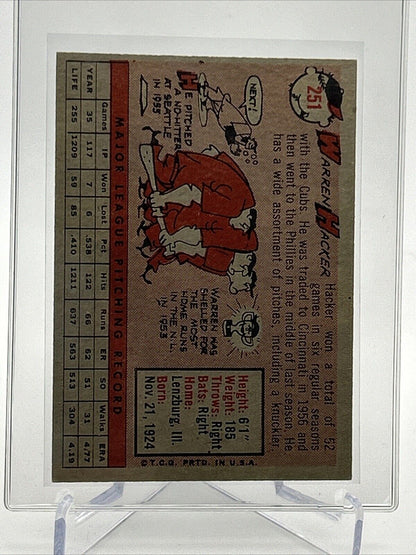 251
WARREN HACKER
Hacker won a total of 52
games in six regular seasons
with the Cubs. He was traded to Cincinnati in 1956 and
then went to the Phillies in the middle of last season. He
has a wide assortment of pitches, including a knuckler.
NEXT!
HE PITCHED
A NO-HITTER
AT SEATTLE
IN 1955
WARREN WAS
SHELLED FOR
THE MOST
HOME RUNS
IN THE N.L.
IN 1953
Height: 6'1"
Weight: 185
Throws: Right
Bats: Right
Home:
Lenzburg, Ill.
Born:
Nov. 21, 1924
© T.C.G. PRTD. IN U.S.A.
MAJOR LEAGUE PITCHING RECORD
Games IP Won Lost Pct. Hits Runs ER SO Walks ERA
YEAR 35 117 7 6 .538 122 66 62 51 31 4.77
LIFE 255 1209 59 85 .410 1211 637 563 513 304 4.19